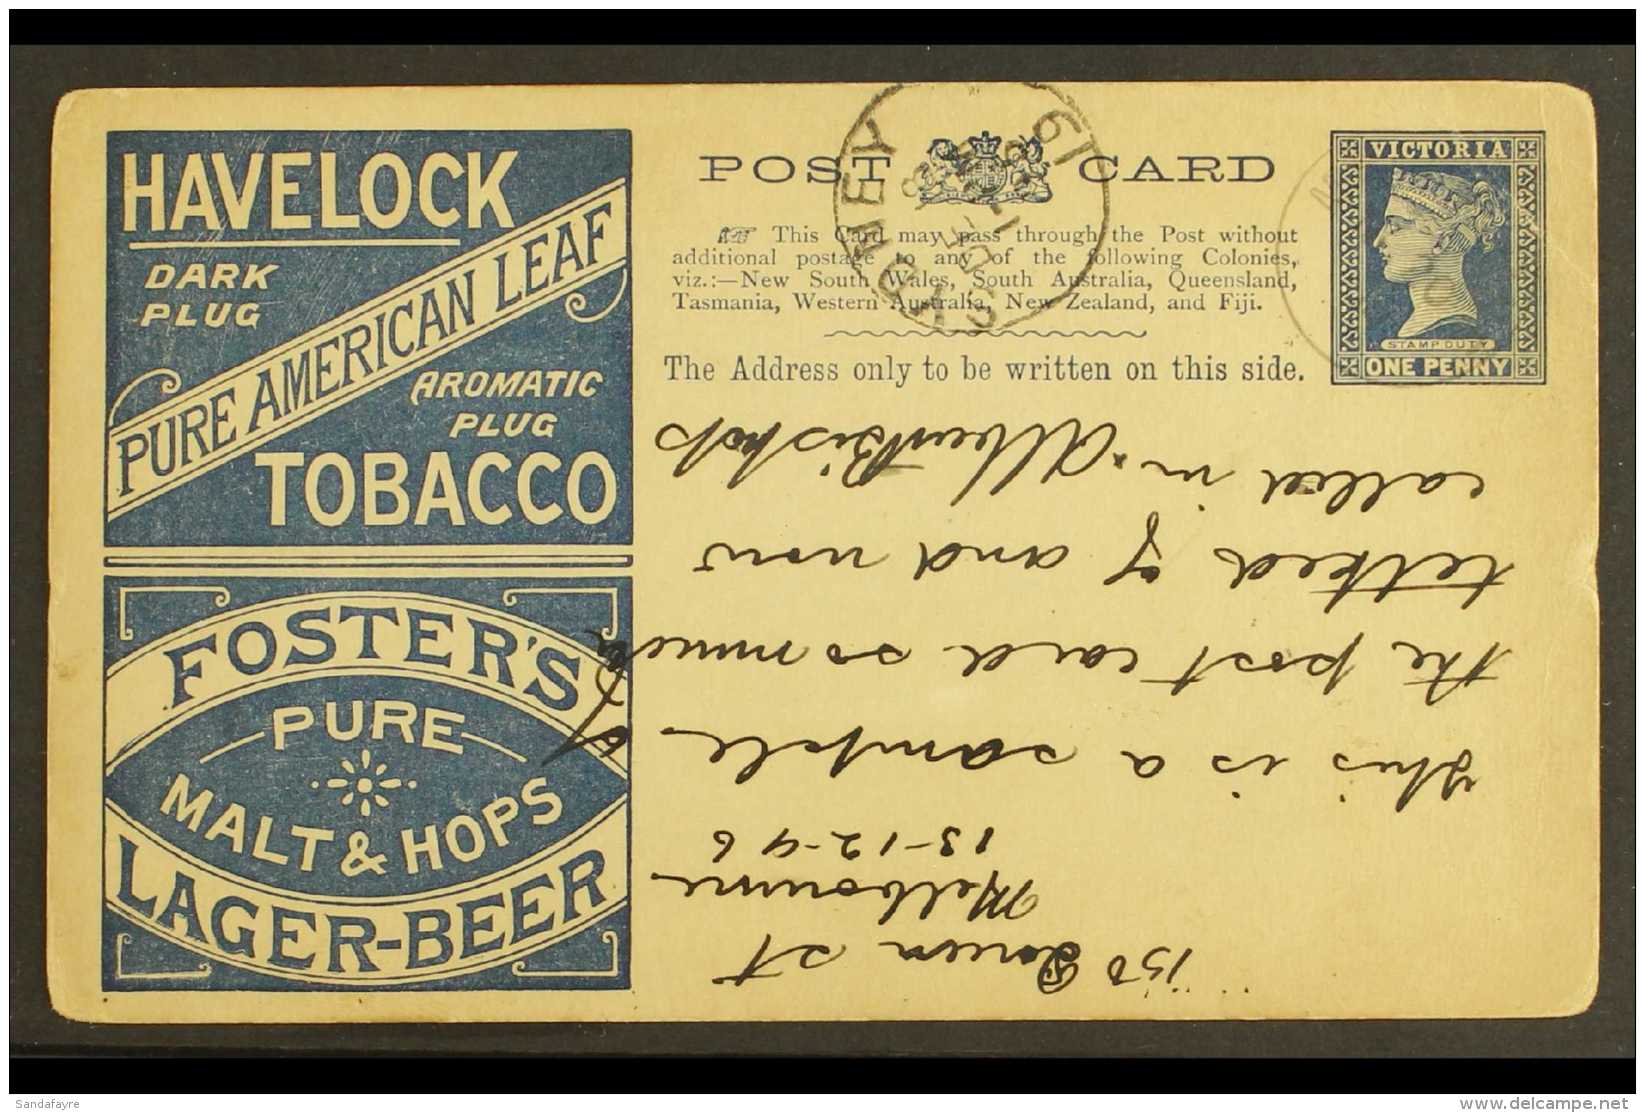 HAVELOCK
DARK
PLUG
PURE AMERICAN LEAF
AROMATIC
PLUG
TOBACCO
FOSTER'S
PURE
MALT & HOPS
LAGER-BEER
POST CARD
This Card may pass through the Post without
additional postage to any of the following Colonies,
viz.:—New South Wales, South Australia, Queensland,
Tasmania, Western Australia, New Zealand, and Fiji.
The Address only to be written on this side.
VICTORIA
STAMP DUTY
ONE PENNY
SYDNEY
19
150 st
Melbourne
13-12-96
This is a sample of
the post card so much
talked of and now
called in Bishop
Sandafayre
www.delcampe.net